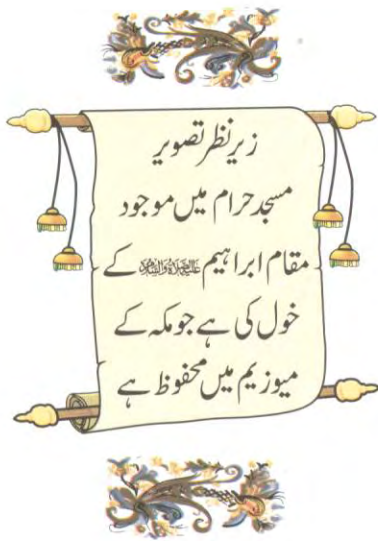 زیر نظر تصویر
مسجد حرام میں موجود
مقام ابراہیم علیہ الصلوٰۃ والسلام کے
خول کی ہے جو مکہ کے
میوزیم میں محفوظ ہے